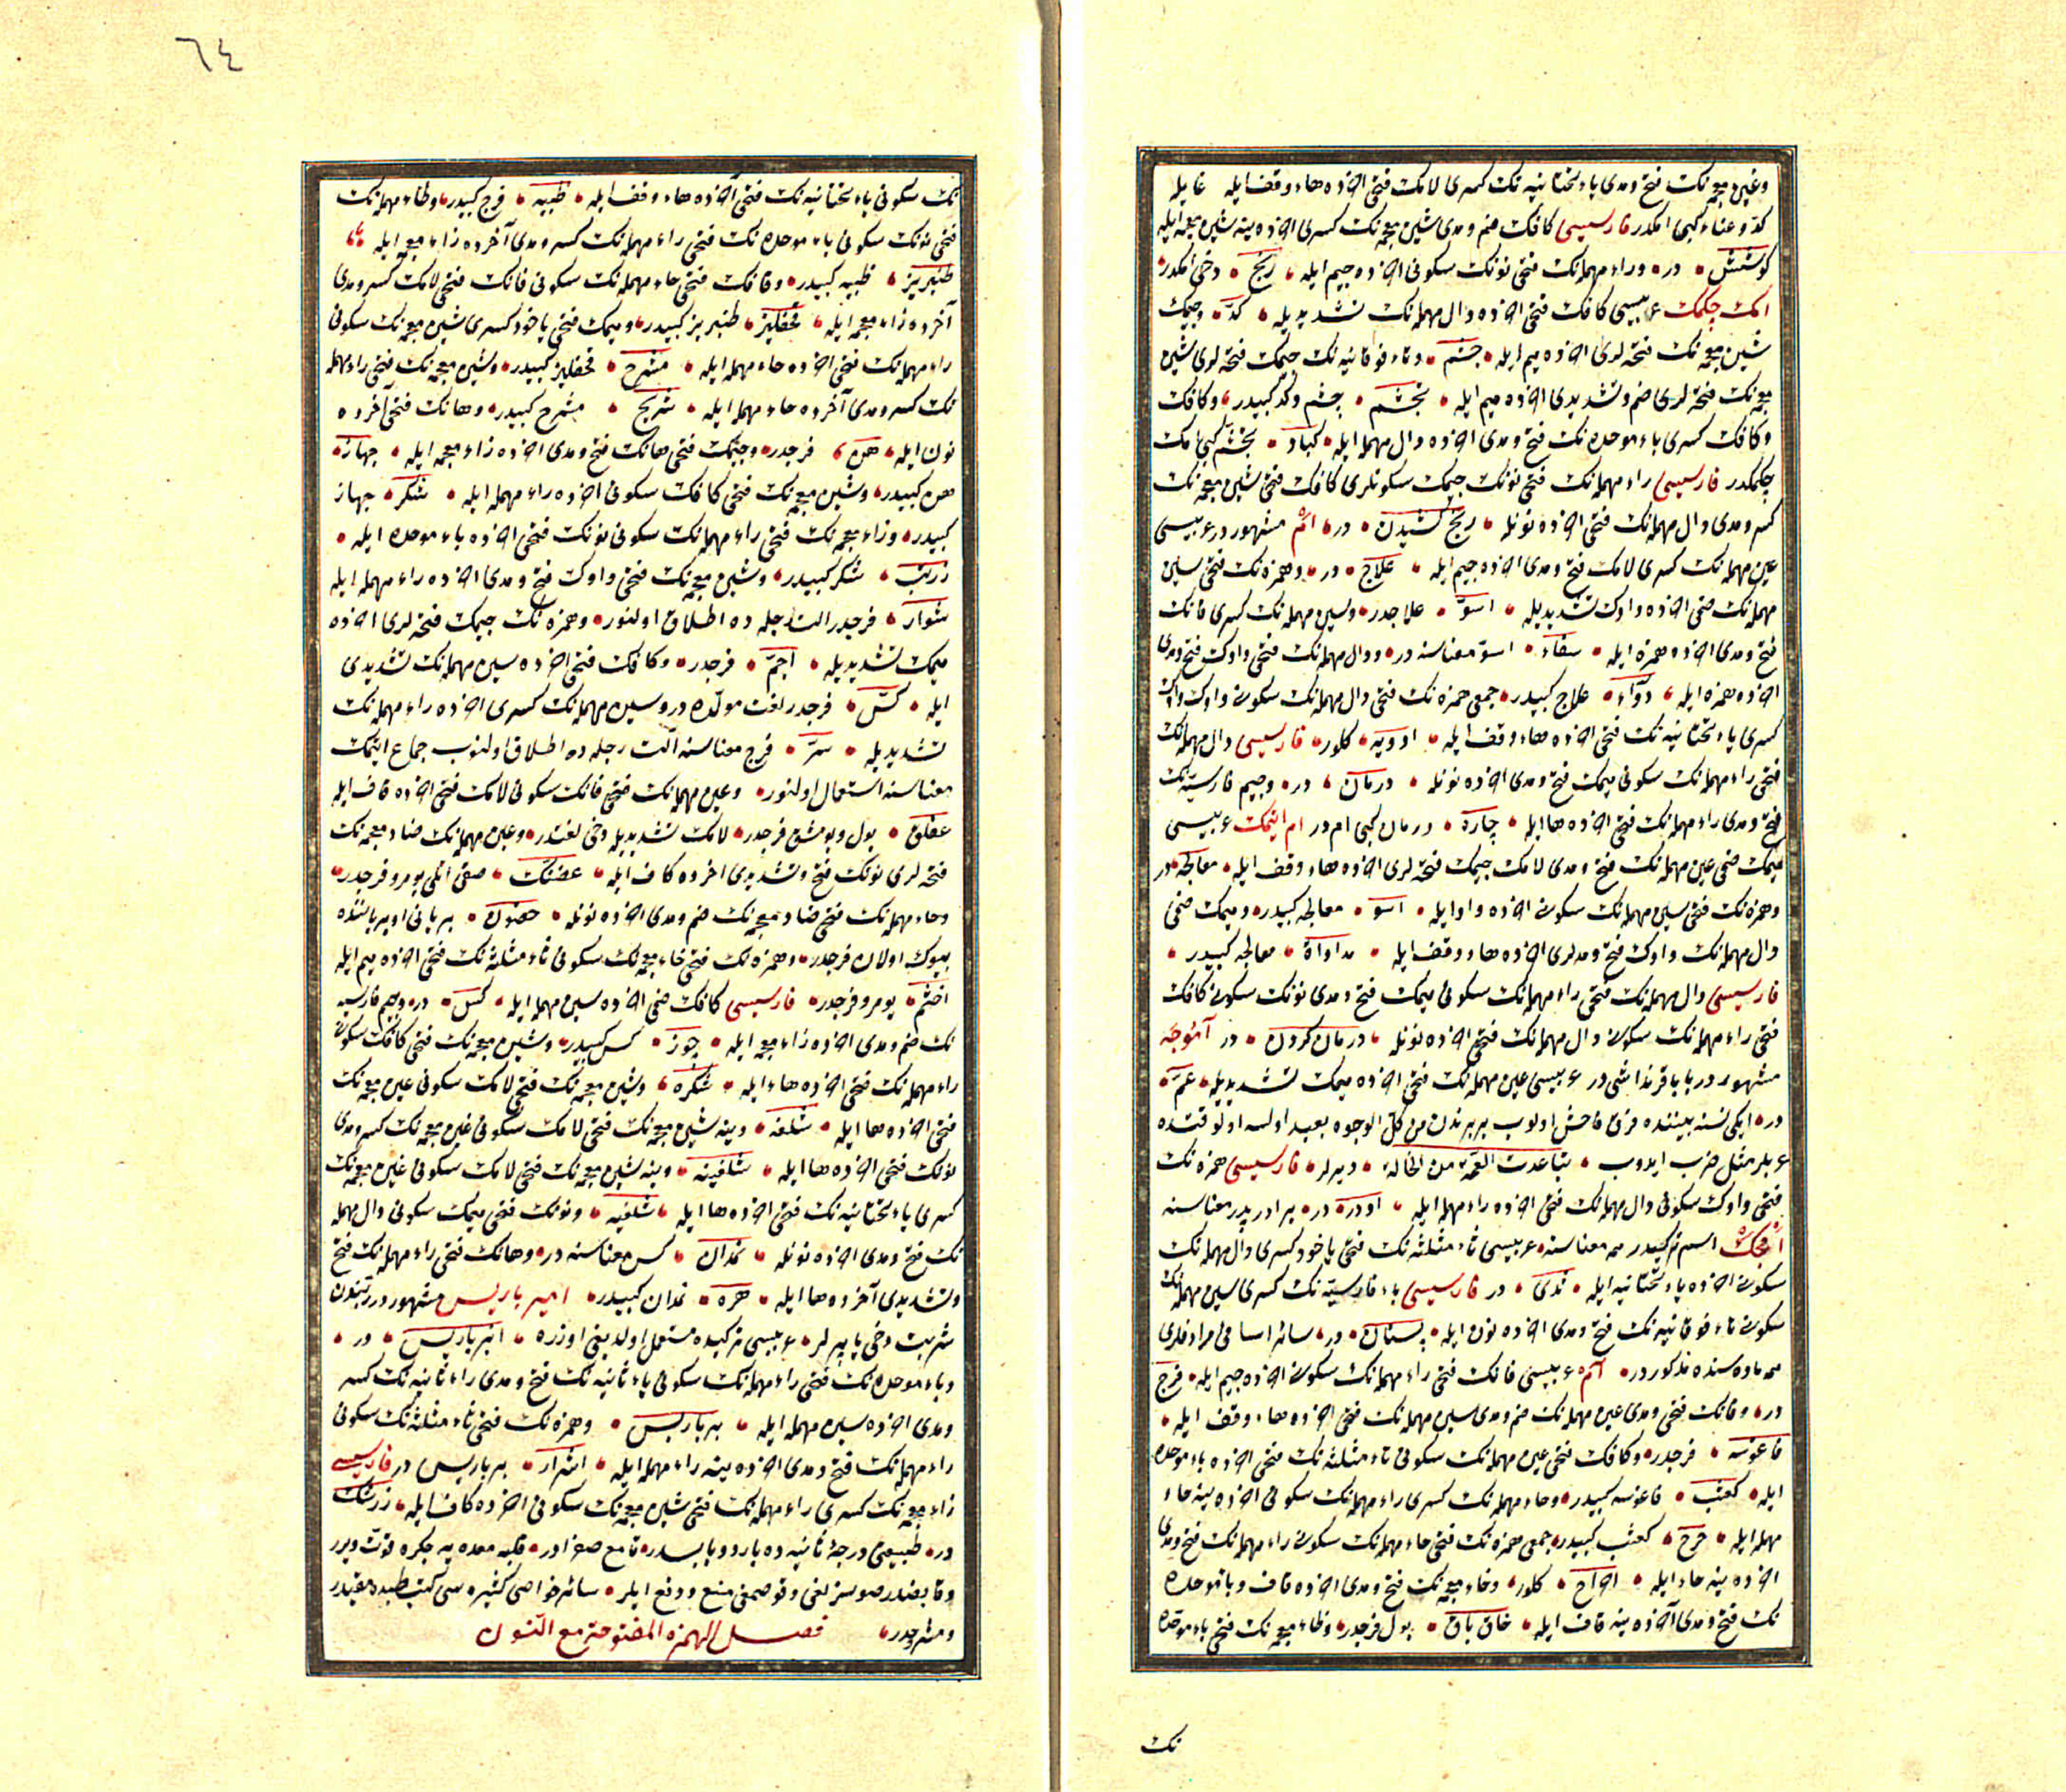 وغين معجمه‌نك فتح ومدى ياء تحتانيه‌نك كسرى لامك فتحى اخرده هاء وقف ايله غايله
كدّ وعناء كبى امكدر فارسيسى كافك ضم ومدى شين معجمه‌نك كسرى اخرده ينه شين معجمه ايله
كوشش در وراء مهمله‌نك فتحى نونك سكونى اخرده جيم ايله رنج دخى امكدر
امك چكمك عربيسى كافك فتحى اخرده دال مهمله‌نك تشديديله كدّ وجيمك
شين معجمه‌نك فتحه‌لرى اخرده ميم ايله جشم وتاء فوقانيه‌نك جيمك فتحه‌لرى شين
معجمه‌نك فتحه‌لرى ضم وتشديدى اخرده ميم ايله تجشّم جشم وكدّ كبيدر وكافك
وكافك كسرى باء موحده‌نك فتح ومدى اخرده دال مهمله ايله كباد تجشّم كبى امك
چكمكدر فارسيسى راء مهمله‌نك فتحى نونك جيمك سكونلرى كافك فتحى شين معجمه‌نك
كسر ومدى دال مهمله‌نك فتحى اخرده نونله رنج كشيدن در ام مشهوردر عربيسى
عين مهمله‌نك كسرى لامك فتح ومدى اخرده جيم ايله علاج در وهمزه‌نك فتحى سين
مهمله‌نك ضمى اخرده واوك تشديديله اسوّ علاجدر وسين مهمله‌نك كسرى فانك
فتح ومدى اخرده همزه ايله سفاء اسوّ معناسنه در ودال مهمله‌نك فتحى واوك فتح ومدى
اخرده همزه ايله دواء علاج كبيدر جمعى همزه‌نك فتحى دال مهمله‌نك سكون واوك
كسرى ياء تحتانيه‌نك فتحى اخرده هاء وقف ايله ادويه كلور فارسيسى دال مهمله‌نك
فتحى راء مهمله‌نك سكونى ميمك فتح ومدى اخرده نونله درمان در وجيم فارسيه‌نك
فتح ومدى راء مهمله‌نك فتحى اخرده ها ايله چاره درمان كبى امدر ام ايتمك عربيسى
ميمك ضمى عين مهمله‌نك فتح ومدى لامك جيمك فتحه‌لرى اخرده هاء وقف ايله معالجه در
وهمزه‌نك فتحى سين مهمله‌نك سكون اخرده واو ايله اسو معالجه كبيدر وميمك ضمى
دال مهمله‌نك واوك فتح ومدلرى اخرده هاء وقف ايله مداواة معالجه كبيدر
فارسيسى دال مهمله‌نك فتحى راء مهمله‌نك سكونى ميمك فتح ومدى نونك سكون كافك
فتحى راء مهمله‌نك سكون دال مهمله‌نك فتحى اخرده نونله درمان كردن در آموجه
مشهوردر بابا قرنداشى در عربيسى عين مهمله‌نك فتحى اخرده ميمك تشديديله عمّ
در ايكى نسنه بيننده فرق فاحش اولوب بربرندن من كل الوجوه بعيد اولسه اول وقتده
عربلر مثل ضرب ايدوب تباعدت العمّة من الخالة ديرلر فارسيسى همزه‌نك
فتحى واوك سكونى دال مهمله‌نك فتحى اخرده راء مهمله ايله اودر در برادر پدر معناسنه
امجك اسم تركيدر ممه معناسنه عربيسى ثاء مثلثه‌نك فتحى ياخود كسرى دال مهمله‌نك
سكون اخرده ياء تحتانيه ايله ثدى در فارسيسى باء فارسيّه‌نك كسرى سين مهمله‌نك
سكون تاء فوقانيه‌نك فتح ومدى اخرده نون ايله پستان در سائر اسامى مرادفلرى
ممه ماده‌سنده مذكوردر آم عربيسى فانك فتحى راء مهمله‌نك سكون اخرده جيم ايله فرج
در وفانك فتحى ومدى عين مهمله‌نك ضم ومدى سين مهمله‌نك فتحى اخرده هاء وقف ايله
فاعوسه فرجدر وكافك فتحى عين مهمله‌نك سكونى ثاء مثلثه‌نك فتحى اخرده باء موحده
ايله كعثب فاعوسه كبيدر وحاء مهمله‌نك كسرى راء مهمله‌نك سكونى اخرده ينه حاء
مهمله ايله حرح كعثب كبيدر جمعى همزه‌نك فتحى حاء مهمله‌نك سكون راء مهمله‌نك فتح ومدى
اخرده ينه حاء ايله احراح كلور وخاء معجمه‌نك فتح ومدى اخرده قاف وباء موحده
نك فتح ومدى آخرده ينه قاف ايله خاق باق بول فرجدر وظاء معجمه‌نك فتحى باء موحده
نك
٦٤
نك سكونى ياء تحتانيه‌نك فتحى آخرده هاء وقف ايله ظبيه فرج كبيدر وطاء مهمله‌نك
فتحى نونك سكونى باء موحده‌نك فتحى راء مهمله‌نك كسر ومدى آخرده زاء معجمه ايله
طنبريز ظبيه كبيدر وقافك فتحى حاء مهمله‌نك سكونى فانك فتحى لامك كسر ومدى
آخرده زاء معجمه ايله قحفليز طنبريز كبيدر وميمك فتحى ياخود كسرى شين معجمه‌نك سكونى
راء مهمله‌نك فتحى اخرده حاء مهمله ايله مشرح قحفليز كبيدر وشين معجمه‌نك فتحى راء مهمله
نك كسر ومدى آخرده حاء مهمله ايله شريح مشرح كبيدر وهانك فتحى آخرده
نون ايله هن فرجدر وجيمك فتحى هانك فتح ومدى اخرده زاء معجمه ايله جهاز
هن كبيدر وشين معجمه‌نك فتحى كافك سكونى اخرده راء مهمله ايله شكر جهاز
كبيدر وزاء معجمه‌نك فتحى راء مهمله‌نك سكونى نونك فتحى اخرده باء موحده ايله
زرنب شكر كبيدر وشين معجمه‌نك فتحى واوك فتح ومدى اخرده راء مهمله ايله
شوار فرجدر التِ رجله ده اطلاق اولنور وهمزه‌نك جيمك فتحه‌لرى اخرده
ميمك تشديديله اجمّ فرجدر وكافك فتحى اخرده سين مهمله‌نك تشديدى
ايله كسّ فرجدر لغت مولّده در وسين مهمله‌نك كسرى اخرده راء مهمله‌نك
تشديديله سرّ فرج معناسنه آلت رجله ده اطلاق اولنوب جماع ايتمك
معناسنه استعمال اولنور وعين مهمله‌نك فتحى فانك سكونى لامك فتحى اخرده قاف ايله
عفلق بول ويومشق فرجدر لامك تشديديله دخى لغتدر وعين مهمله‌نك ضاد معجمه‌نك
فتحه‌لرى نونك فتح وتشديدى اخرده كاف ايله عضنّك صقى اتلى يومرو فرجدر
وحاء مهمله‌نك فتحى ضاد معجمه‌نك ضم ومدى اخرده نونله حضون بر يانى اوبر ياننده
بيوك اولان فرجدر وهمزه‌نك فتحى خاء معجمه‌نك سكونى ثاء مثلثه‌نك فتحى اخرده ميم ايله
اخثم يومرو فرجدر فارسيسى كافك ضمى اخرده سين مهمله ايله كس در وجيم فارسيه
نك ضم ومدى اخرده زاء معجمه ايله چوز كس كبيدر وشين معجمه‌نك فتحى كافك سكون
راء مهمله‌نك فتحى اخرده هاء ايله شكره وشين معجمه‌نك فتحى لامك سكونى غين معجمه‌نك
فتحى اخرده ها ايله شلغه وينه شين معجمه‌نك فتحى لامك سكونى غين معجمه‌نك كسر ومدى
نونك فتحى اخرده ها ايله شلغينه وينه شين معجمه‌نك فتحى لامك سكونى غين معجمه‌نك
كسرى ياء تحتانيه‌نك فتحى اخرده ها ايله شلغيه ونونك فتحى ميمك سكونى دال مهمله
نك فتح ومدى اخرده نونله نمدان كس معناسنه در وهانك فتحى راء مهمله‌نك فتح
وتشديدى آخرده ها ايله هرّه نمدان كبيدر امير باريس مشهوردر ربّندن
شربت دخى ياپيرلر عربيسى تركيده مستعمل اولديغى اوزره انبرباريس در
وباء موحده‌نك فتحى راء مهمله‌نك سكونى باء ثانيه‌نك فتح ومدى راء ثانيه‌نك كسر
ومدى اخرده سين مهمله ايله برباريس وهمزه‌نك فتحى ثاء مثلثه‌نك سكونى
راء مهمله‌نك فتح ومدى اخرده ينه راء مهمله ايله اثرار برباريس در فارسيسى
زاء معجمه‌نك كسرى راء مهمله‌نك فتحى شين معجمه‌نك سكونى اخرده كاف ايله زرشك
در طبيعتى درجۀ ثانيه ده بارد ويابسدر قامع صفرادر قلبه معده يه جكره قوّت ويرر
وقابضدر صوسزلغى وقوصمغى منع ودفع ايلر سائر خواصى كثيره سى كتب طبيه ده مقيّد
ومشروحدر فصل الهمزه المفتوحة مع النون